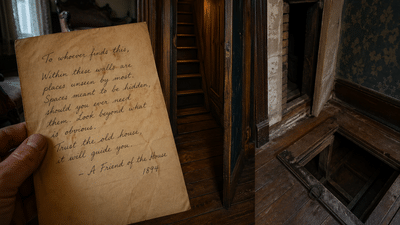 To whoever finds this,
Within these walls are
places unseen by most.
Spaces meant to be hidden,
should you ever need
them. Look beyond what
is obvious.
Trust the old house,
it will guide you.
- A Friend of the House
1894